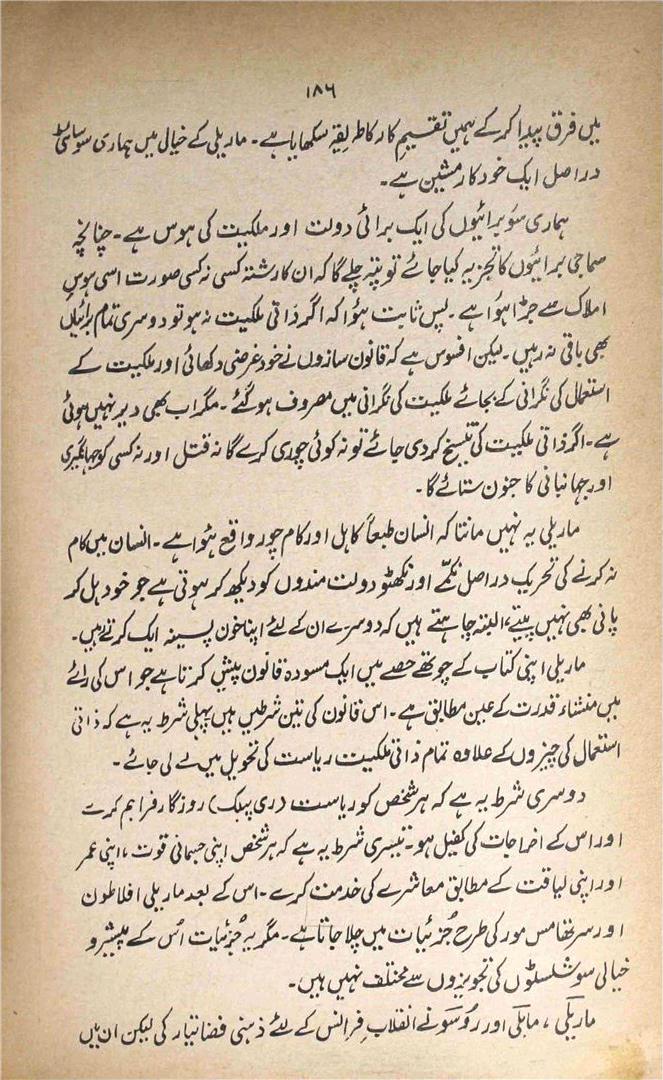 ۱۸۶
میں فرق پیدا کر کے ہمیں تقسیمِ کار کا طریقہ سکھایا ہے۔ ماریلی کے خیال میں ہماری سوسائٹی
دراصل ایک خودکار مشین ہے۔
ہماری سو برائیوں کی ایک برائی دولت اور ملکیت کی ہوس ہے۔ چنانچہ
سماجی برائیوں کا تجزیہ کیا جائے تو پتہ چلے گا کہ ان کا رشتہ کسی نہ کسی صورت اسی ہوسِ
املاک سے جڑا ہوا ہے۔ پس ثابت ہوا کہ اگر ذاتی ملکیت نہ ہو تو دوسری تمام برائیاں
بھی باقی نہ رہیں۔ لیکن افسوس ہے کہ قانون سازوں نے خود غرضی دکھائی اور ملکیت کے
استعمال کی نگرانی کے بجائے ملکیت کی نگرانی میں مصروف ہو گئے۔ مگر اب بھی دیر نہیں ہوئی
ہے۔ اگر ذاتی ملکیت کی تنسیخ کر دی جائے تو نہ کوئی چوری کرے گا نہ قتل اور نہ کسی کو جہانگیری
اور جہانبانی کا جنون ستائے گا۔
ماریلی یہ نہیں مانتا کہ انسان طبعاً کاہل اور کام چور واقع ہوا ہے۔ انسان میں کام
نہ کرنے کی تحریک دراصل نکمّے اور نکھٹو دولت مندوں کو دیکھ کر ہوتی ہے جو خود ہل کر
پانی بھی نہیں پیتے، البتہ چاہتے ہیں کہ دوسرے ان کے لئے اپنا خون پسینہ ایک کرتے رہیں۔
ماریلی اپنی کتاب کے چوتھے حصے میں ایک مسودہ قانون پیش کرتا ہے جو اس کی رائے
میں منشاء قدرت کے عین مطابق ہے۔ اس قانون کی تین شرطیں ہیں پہلی شرط یہ ہے کہ ذاتی
استعمال کی چیزوں کے علاوہ تمام ذاتی ملکیت ریاست کی تحویل میں لے لی جائے۔
دوسری شرط یہ ہے کہ ہر شخص کو ریاست (ری پبلک) روزگار فراہم کرے
اور اس کے اخراجات کی کفیل ہو۔ تیسری شرط یہ ہے کہ ہر شخص اپنی جسمانی قوت، اپنی عمر
اور اپنی لیاقت کے مطابق معاشرے کی خدمت کرے۔ اس کے بعد ماریلی افلاطون
اور سر تھامس مور کی طرح جُزئیات میں چلا جاتا ہے۔ مگر یہ جُزئیات اُس کے پیشرو
خیالی سوشلسٹوں کی تجویزوں سے مختلف نہیں ہیں۔
ماریلی، مابلی اور روسو نے انقلابِ فرانس کے لئے ذہنی فضا تیار کی لیکن ان میں